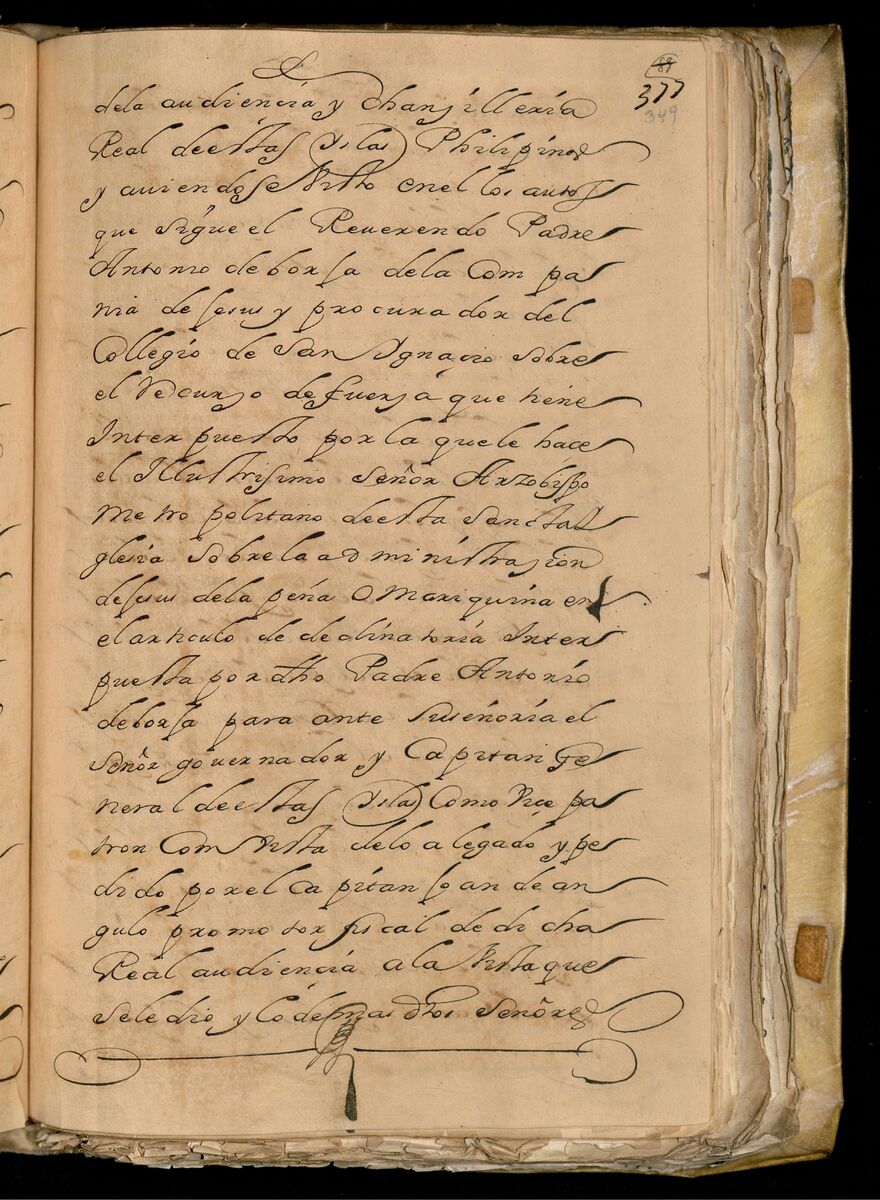 377
349
dela audiencia y Chansilleria
Real deestas Yslas Philipinas
y auiendose Visto enel los autos
que sigue el Reuerendo Padre
Antonio de borja dela Compa
nia de Jesus y procurador del
Collegio de San Ygnacio sobre
el Recurso de fuersa que tiene
Interpuesto por la que le hace
el Illustrisimo Señor Arzobispo
Metropolitano deesta Sancta Y
glesia sobre la administrasion
de Jesus dela peña O Mariquina en
el articulo de declinatoria Inter
puesta por dho Padre Antonio
de borja para ante Suseñoria el
Señor gouernador y Capitan Ge
neral deestas Yslas Como Vice pa
tron Com Vista delo alegado y pe
dido por el Capitan Joan de an
gulo promotor fiscal de dicha
Real audiencia a la Vista que
sele dio y lo demas dhos Señores